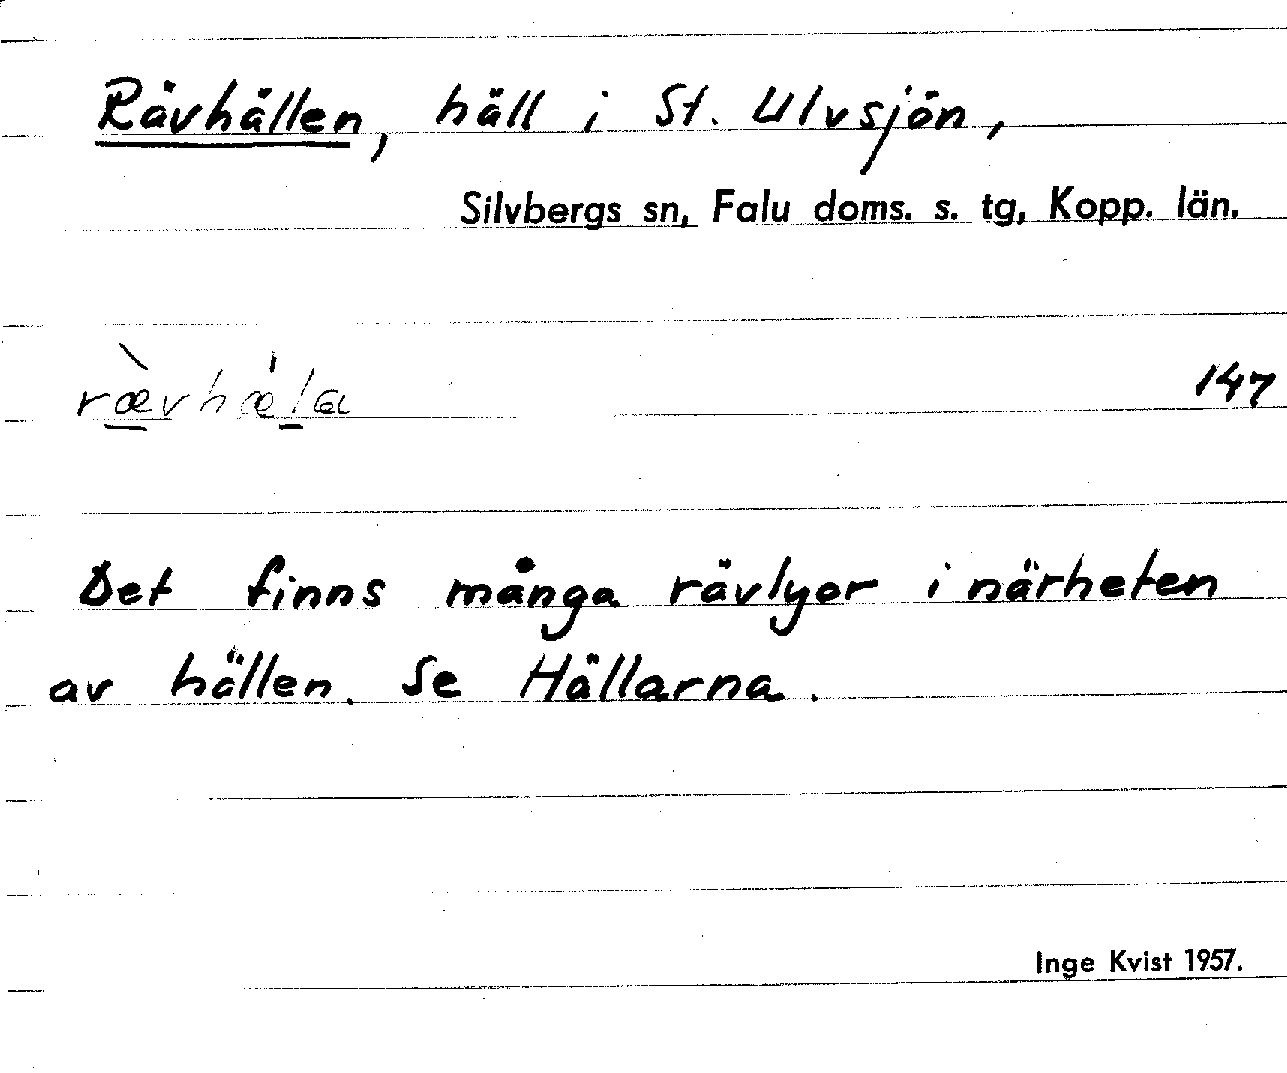 Rävhällen, häll i St. Ulvsjön,
Silvbergs sn, Falu doms. s. tg, Kopp. län.
ræ̀vhæ̍la 147
Det finns många rävlyor i närheten
av hällen. Se Hällarna.
Inge Kvist 1957.